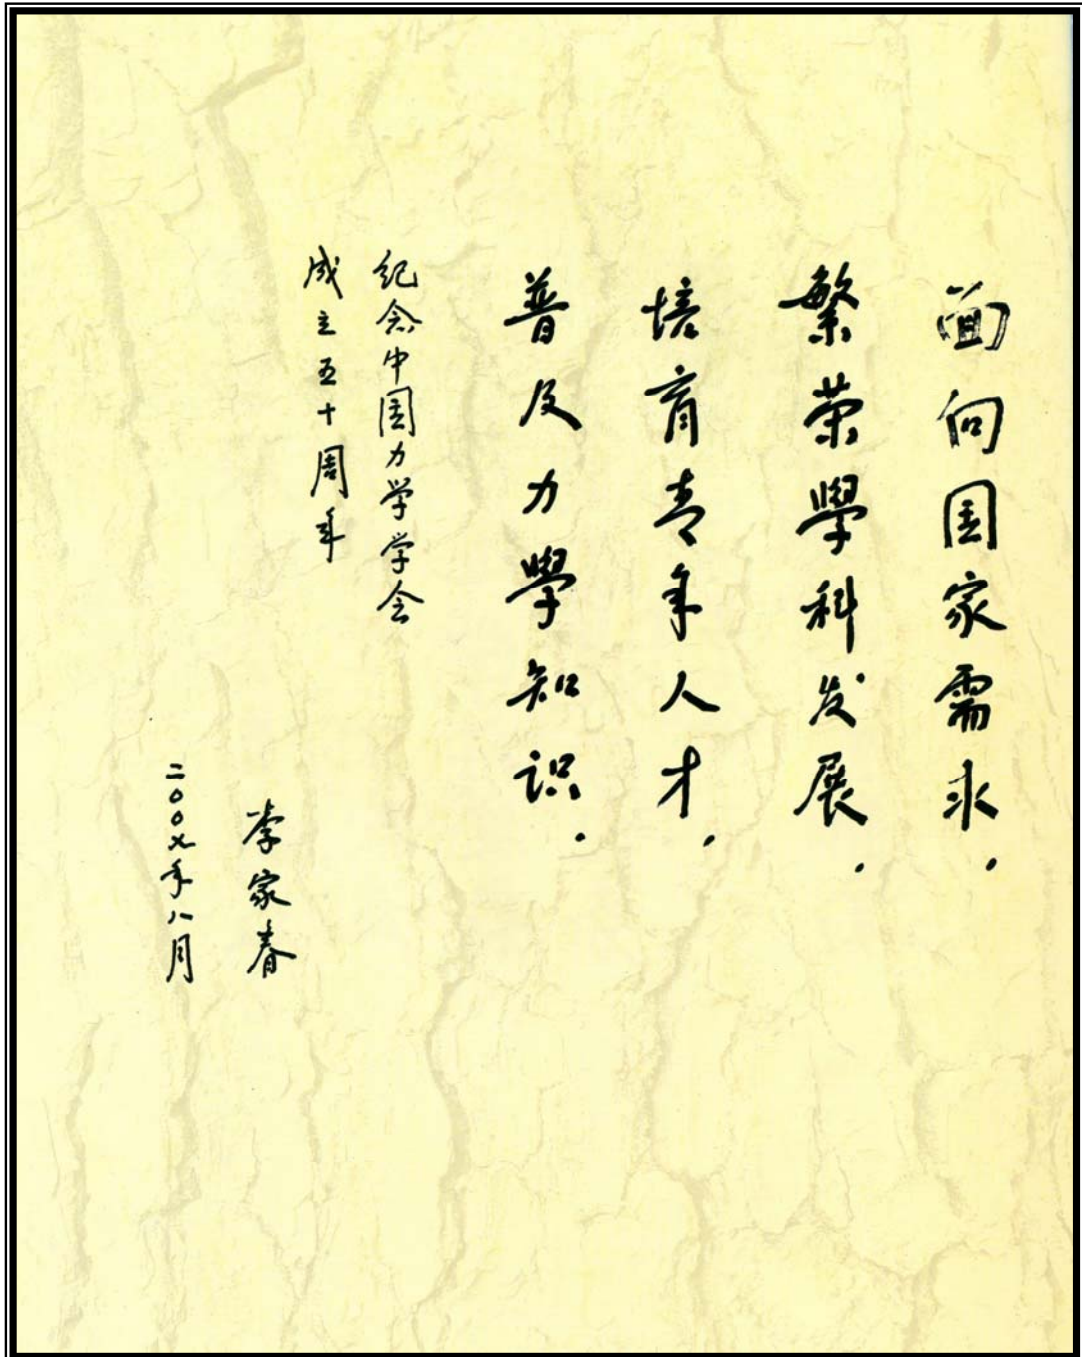 面向国家需求.
繁荣學科发展.
培育青年人才.
普及力學知识.
纪念中国力学学会
成立五十周年
李家春
二〇〇七年八月